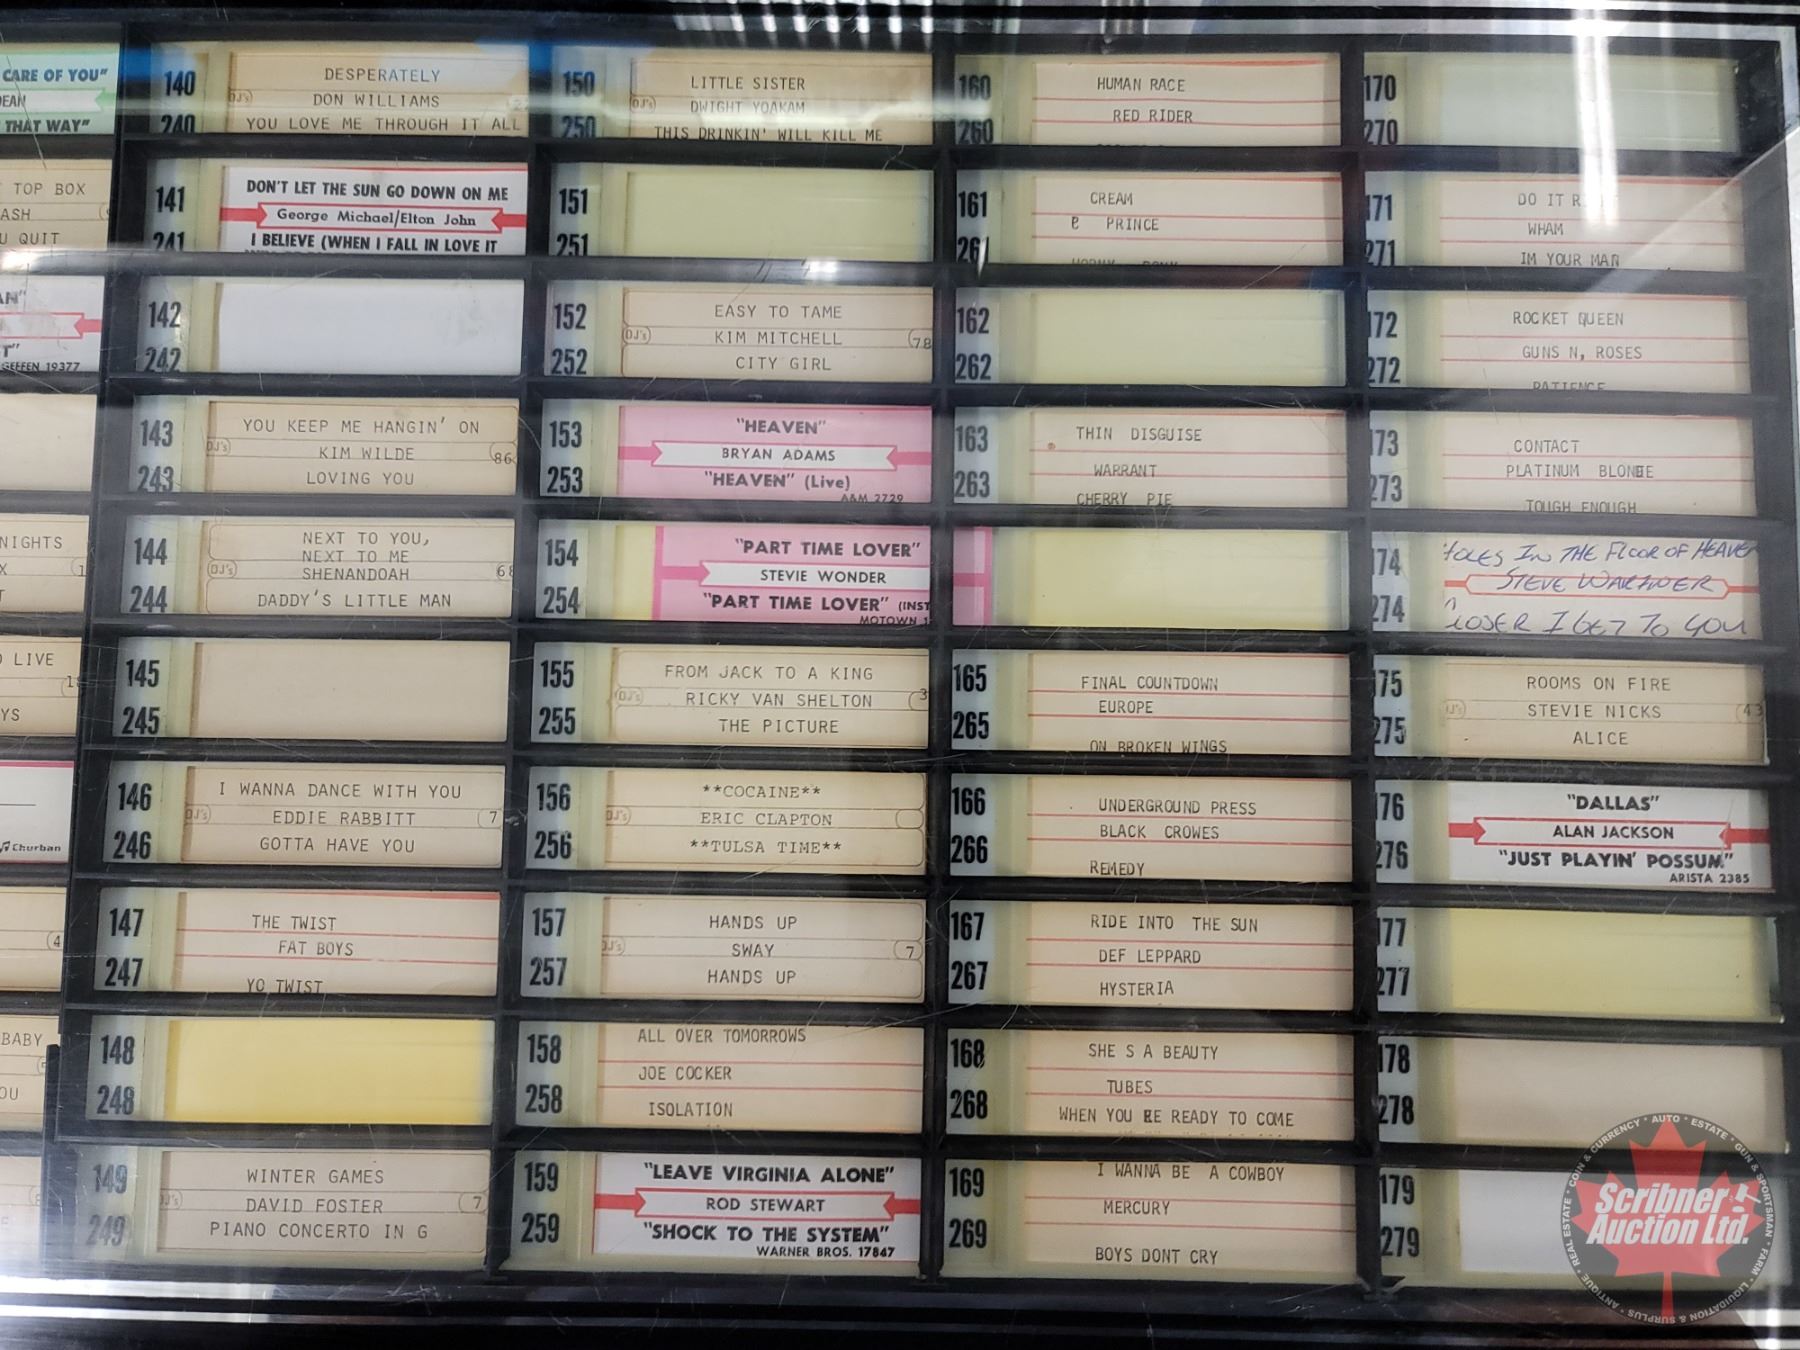 CARE OF YOU"
THAT WAY"
TOP BOX
ASH
U QUIT
AN"
T"
GEFFEN 19377
NIGHTS
LIVE
YS
Churban
BABY
OU
140
240
DESPERATELY
DON WILLIAMS
YOU LOVE ME THROUGH IT ALL
141
241
DON'T LET THE SUN GO DOWN ON ME
George Michael/Elton John
I BELIEVE (WHEN I FALL IN LOVE IT
142
242
143
243
YOU KEEP ME HANGIN' ON
DJ's KIM WILDE 86
LOVING YOU
144
244
NEXT TO YOU,
NEXT TO ME
DJ's SHENANDOAH 68
DADDY'S LITTLE MAN
145
245
146
246
I WANNA DANCE WITH YOU
DJ's EDDIE RABBITT 7
GOTTA HAVE YOU
147
247
THE TWIST
FAT BOYS
YO TWIST
148
248
149
249
WINTER GAMES
DJ's DAVID FOSTER 7
PIANO CONCERTO IN G
150
250
LITTLE SISTER
DJ's DWIGHT YOAKAM
THIS DRINKIN' WILL KILL ME
151
251
152
252
EASY TO TAME
DJ's KIM MITCHELL 78
CITY GIRL
153
253
"HEAVEN"
BRYAN ADAMS
"HEAVEN" (Live)
A&M 2729
154
254
"PART TIME LOVER"
STEVIE WONDER
"PART TIME LOVER" (INST
MOTOWN 1
155
255
FROM JACK TO A KING
DJ's RICKY VAN SHELTON 3
THE PICTURE
156
256
**COCAINE**
DJ's ERIC CLAPTON
**TULSA TIME**
157
257
HANDS UP
DJ's SWAY 7
HANDS UP
158
258
ALL OVER TOMORROWS
JOE COCKER
ISOLATION
159
259
"LEAVE VIRGINIA ALONE"
ROD STEWART
"SHOCK TO THE SYSTEM"
WARNER BROS. 17847
160
260
HUMAN RACE
RED RIDER
161
261
CREAM
PRINCE
162
262
163
263
THIN DISGUISE
WARRANT
CHERRY PIE
165
265
FINAL COUNTDOWN
EUROPE
ON BROKEN WINGS
166
266
UNDERGROUND PRESS
BLACK CROWES
REMEDY
167
267
RIDE INTO THE SUN
DEF LEPPARD
HYSTERIA
168
268
SHE S A BEAUTY
TUBES
WHEN YOU RE READY TO COME
169
269
I WANNA BE A COWBOY
MERCURY
BOYS DONT CRY
170
270
171
271
DO IT R
WHAM
IM YOUR MAN
172
272
ROCKET QUEEN
GUNS N, ROSES
PATIENCE
173
273
CONTACT
PLATINUM BLONDE
TOUGH ENOUGH
174
274
HOLES IN THE FLOOR OF HEAVEN
STEVE WARINER
CLOSER I GET TO YOU
175
275
ROOMS ON FIRE
DJ's STEVIE NICKS 43
ALICE
176
276
"DALLAS"
ALAN JACKSON
"JUST PLAYIN' POSSUM"
ARISTA 2385
177
277
178
278
179
279
Scribner
Auction Ltd.
AUTO • ESTATE • GUN & SPORTSMAN • FARM • LIQUIDATION & SURPLUS • ANTIQUE • REAL ESTATE • COIN & CURRENCY